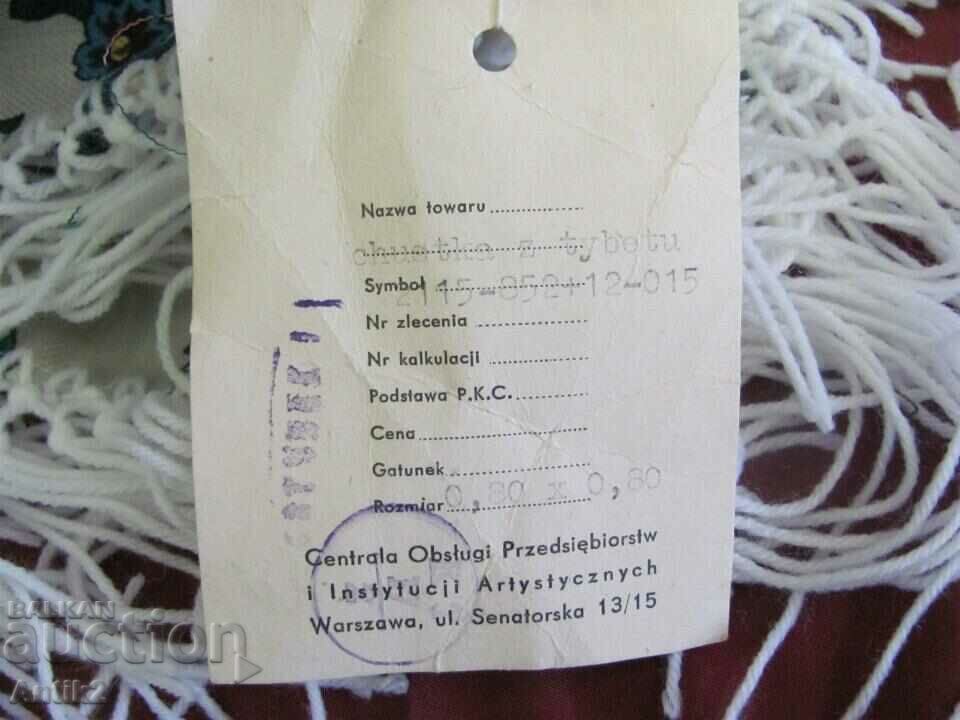 Nazwa towaru
chustka z tybetu
Symbol 2115-852+12-015
Nr zlecenia
Nr kalkulacji
Podstawa P.K.C.
Cena
Gatunek
Rozmiar 0,80 x 0,80
Centrala Obsługi Przedsiębiorstw
i Instytucji Artystycznych
Warszawa, ul. Senatorska 13/15
BALKAN
auction
Antik2